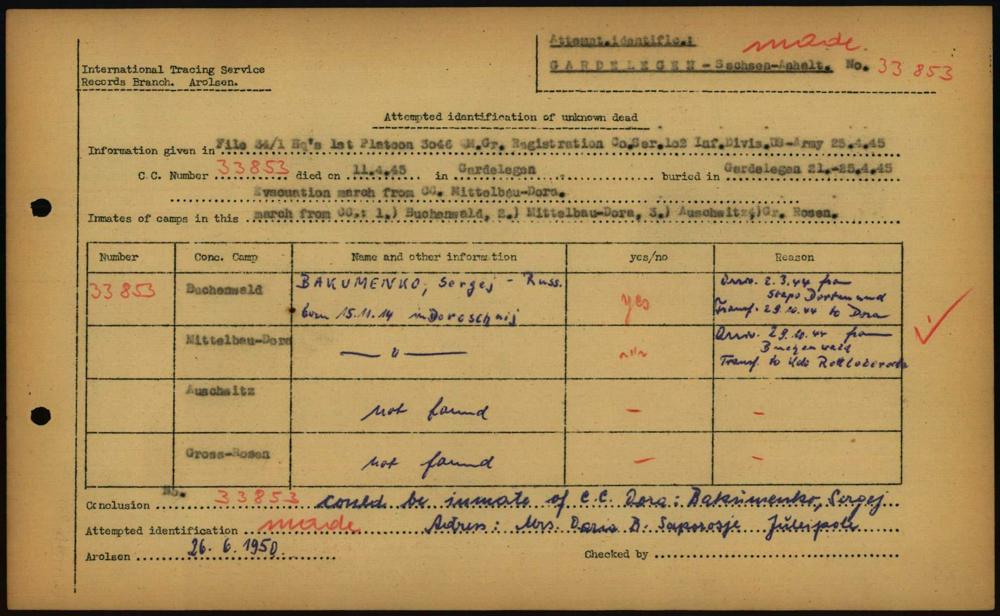 Attempt.identific.: made.
GARDELEGEN - Sachsen-Anhalt. No. 33 853
International Tracing Service
Records Branch. Arolsen.
Attempted identification of unknown dead
Information given in File 84/1 Hq's 1st Platoon 3046 QM.Gr. Registration Co.Ser.102 Inf.Divis.US-Army 25.4.45
C.C. Number 33853 died on 11.4.45 in Gardelegen buried in Gardelegen 21.-25.4.45
Evacuation march from CC. Mittelbau-Dora.
Inmates of camps in this march from CC.: 1.) Buchenwald, 2.) Mittelbau-Dora, 3.) Auschwitz4)Gr. Rosen.
Number Conc. Camp Name and other information yes/no Reason
33853 Buchenwald BAKUMENKO, Sergej - Russ.
born 15.11.14 in
yes
Arriv. 2.3.44 from
Stapo Dortmund
Transf. 29.10.44 to Dora
Mittelbau-Dora — " — —"—
Arriv. 29.10.44 from
Buchenwald
Transf. to Kdo
Auschwitz not found — —
Gross-Rosen not found — —
Conclusion No. 33853 could be inmate of C.C. Dora: Bakumenko, Sergej
Attempted identification made Adress: Mrs. Daria B. Saporosje Juleipole
Arolsen 26. 6. 1950. Checked by